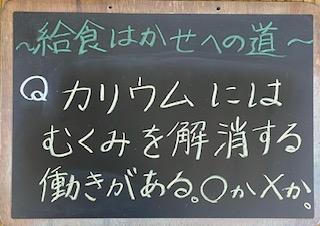 ～給食はかせへの道～
Q カリウムには
むくみを解消する
働きがある。○か×か。